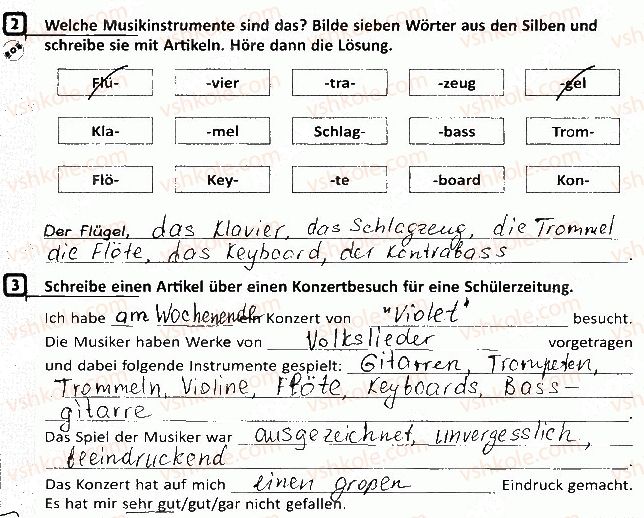 2 Welche Musikinstrumente sind das? Bilde sieben Wörter aus den Silben und
schreibe sie mit Artikeln. Höre dann die Lösung.
Flü- -vier -tra- -zeug -gel
Kla- -mel Schlag- -bass Trom-
Flö- Key- -te -board Kon-
Der Flügel, das Klavier, das Schlagzeug, die Trommel
die Flöte, das Keyboard, der Kontrabass.
3 Schreibe einen Artikel über einen Konzertbesuch für eine Schülerzeitung.
Ich habe am Wochenende ein Konzert von "Violet" besucht.
Die Musiker haben Werke von Volkslieder vorgetragen
und dabei folgende Instrumente gespielt: Gitarren, Trompeten,
Trommeln, Violine, Flöte, Keyboards, Bass-
gitarre.
Das Spiel der Musiker war ausgezeichnet, unvergesslich,
beeindruckend.
Das Konzert hat auf mich einen großen Eindruck gemacht.
Es hat mir sehr gut/gut/gar nicht gefallen.
vshkole.com